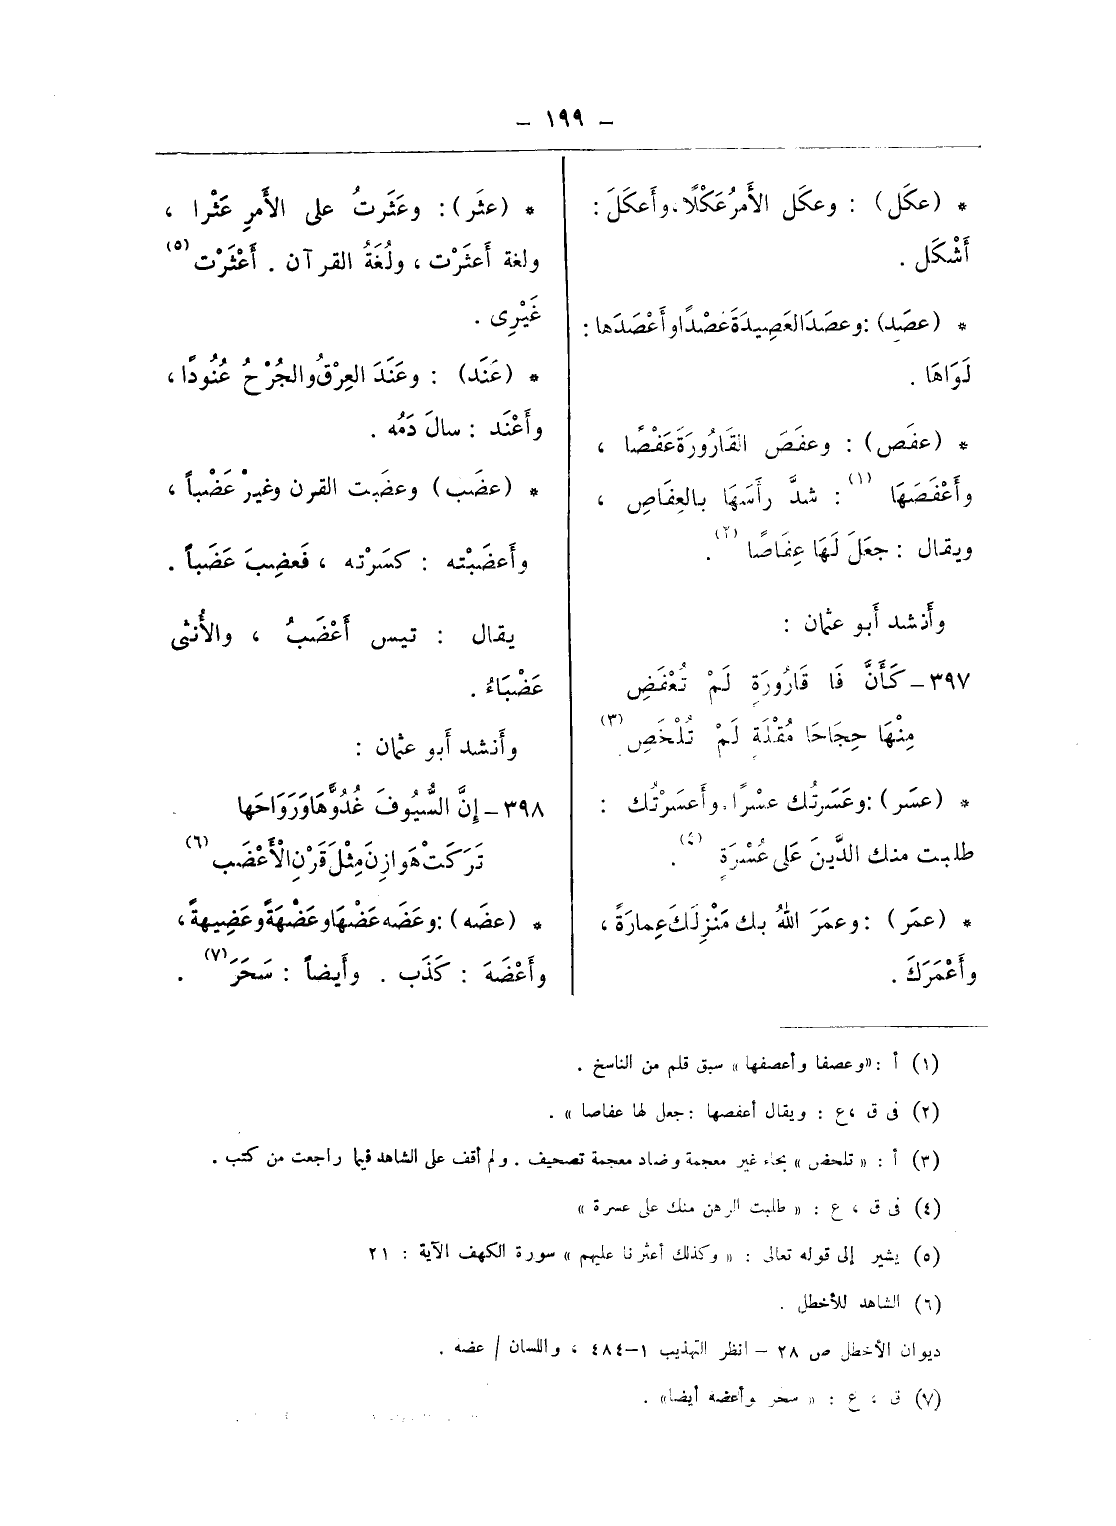 – ١٩٩ –
* (عكَل) : وعكَل الأَمرُ عَكْلًا، وأَعكَلَ :
أَشْكَل .
* (عصَد) : وعصَدَ العَصِيدَةَ عَصْدًا وأَعْصَدَها :
لَوَاهَا .
* (عفَص) : وعفَصَ القَارُورَةَ عَفْصًا ،
وأَعْفَصَهَا (١) : شدَّ رأَسَهَا بالعِفَاصِ ،
ويقال : جعَلَ لَهَا عِفَاصًا (٢) .
وأَنشد أَبو عثمان :
٣٩٧ – كَأَنَّ فَا قَارُورَةٍ لَمْ تُعْفَصِ
مِنْهَا حِجَاجَا مُقْلَةٍ لَمْ تُلْخَصِ (٣)
* (عسَر) : وعَسَرتُك عسْرًا، وأَعسَرْتُك :
طلبت منك الدَّينَ عَلى عُسْرَةٍ (٤) .
* (عمَر) : وعمَرَ اللهُ بك مَنْزِلَكَ عِمارَةً ،
وأَعْمَرَكَ .
* (عثَر) : وعَثَرتُ على الأَمرِ عَثْرا ،
ولغة أَعثَرْت ، ولُغَةُ القرآن . أَعْثَرْت (٥)
غَيْرِى .
* (عَنَد) : وعَنَدَ العِرْقُ والجُرْحُ عُنُودًا ،
وأَعْنَد : سالَ دَمُه .
* (عضَب) وعضَبت القرن وغيرْ عَضْباً ،
وأَعضَبْته : كسَرْته ، فَعضِبَ عَضَباً .
يقال : تيس أَعْضَبُ ، والأُنثى
عَضْبَاءُ .
وأَنشد أَبو عثمان :
٣٩٨ – إِنَّ السُّيُوفَ غُدُوَّهَا وَرَوَاحَها
تَرَكَتْ هَوازِنَ مِثْلَ قَرْنِ الْأَعْضَب (٦)
* (عضَه) : وعَضَه عَضْهًا وعَضْهَةً وعَضِيهةً ،
وأَعْضَهَ : كَذَب . وأَيضاً : سَحَرَ (٧) .
(١) أ : «وعصفا وأعصفها» سبق قلم من الناسخ .
(٢) فى ق ،ع : ويقال أعفصها : جعل لها عفاصا » .
(٣) أ : « تلحض » بحاء غير معجمة وضاد معجمة تصحيف . ولم أقف على الشاهد فيما راجعت من كتب .
(٤) فى ق ، ع : « طلبت الرهن منك على عسرة »
(٥) يشير إلى قوله تعالى : « وكذلك أعثرنا عليهم » سورة الكهف الآية : ٢١
(٦) الشاهد للأخطل .
ديوان الأخطل ص ٢٨ – انظر التهذيب ١–٤٨٤ ، واللسان / عضه .
(٧) ق ، ع : « سحر وأعضه أيضا» .